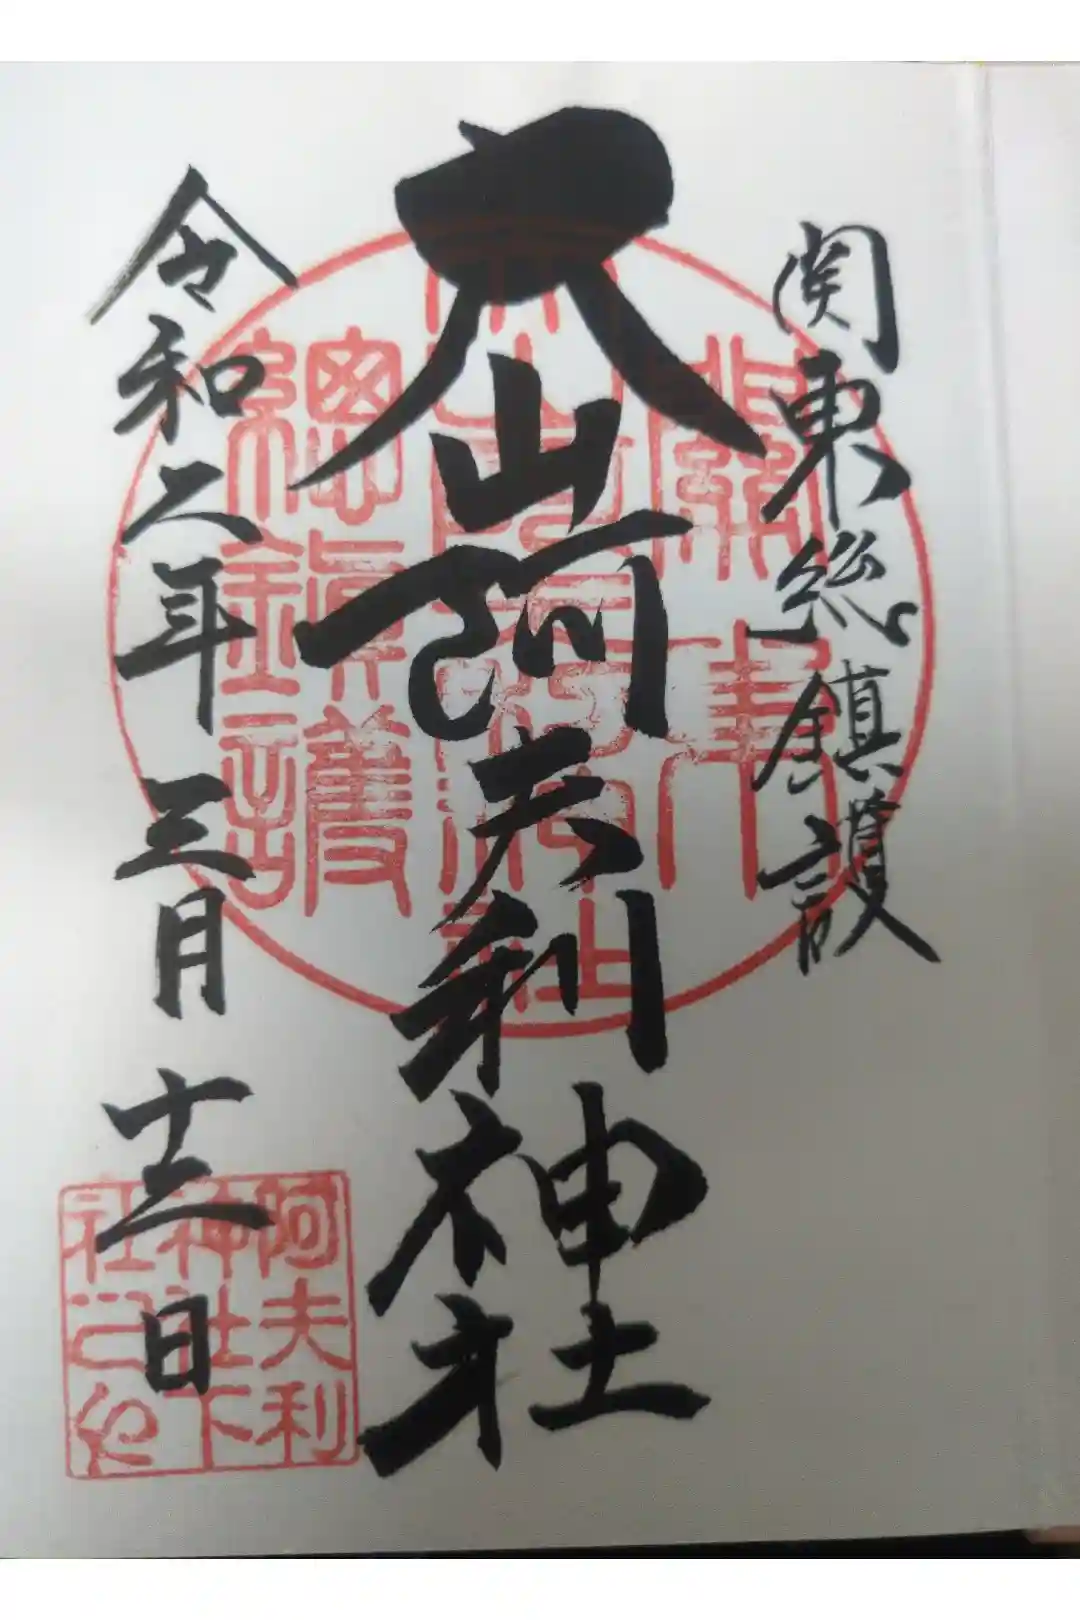 関東総鎮護
大山阿夫利神社
令和二年三月十三日
關東
大山阿夫利神社
總鎮護
阿夫利
神社下
社之印